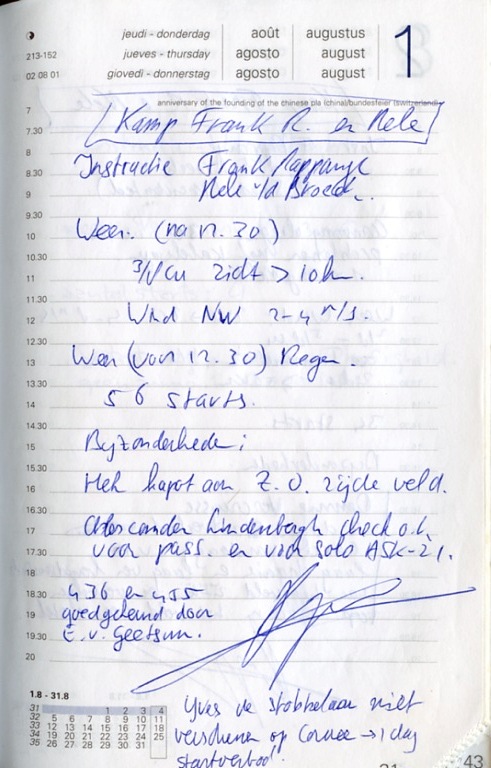 jeudi - donderdag août augustus 1
213-152 jueves - thursday agosto august
02 08 01 giovedi - donnerstag agosto august
anniversary of the founding of the chinese pla (china)/bundesfeier (switzerland)
7
7.30 Kamp Frank R. en Nele
8 Instructie Frank
8.30
9 Nele v/d Broeck.
9.30 Weer. (na 12.30)
10
10.30
11 zicht > 10 km.
11.30
12 Wind NW 2-4 m/s.
12.30
13 Weer (voor 12.30) Regen.
13.30
14 56 starts.
14.30
15 Byzonderheden:
15.30
16 Hek kapot aan Z.O. zijde veld.
16.30
17 Lindenbergh check o.k.
17.30 voor pass. en voor solo ASK-21.
18
18.30 436 en 455
19 goedgekeurd door
19.30 E. v. Geetsum.
20
1.8 - 31.8
31 1 2 3 4
32 5 6 7 8 9 10 11
33 12 13 14 15 16 17 18
34 19 20 21 22 23 24 25
35 26 27 28 29 30 31
Yves de Stobbelaar niet
verschenen op → 1 day
startverbod.
43